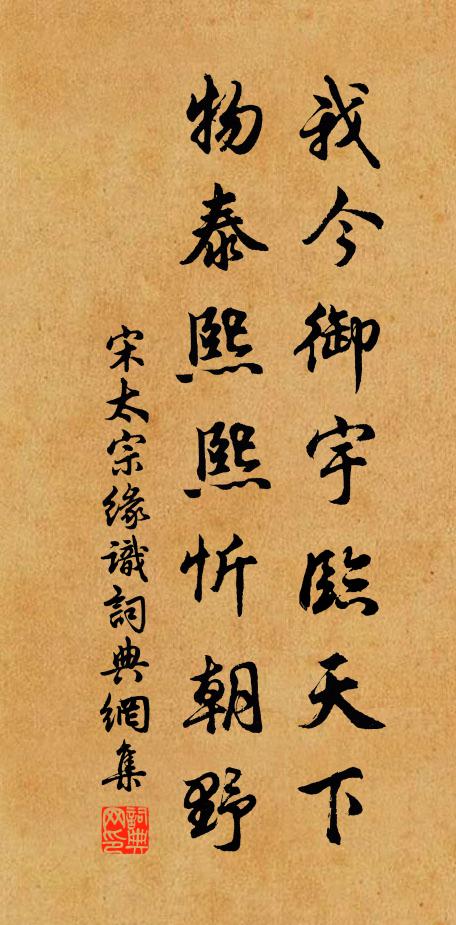 我今御宇臨天下
物泰熙熙忻朝野
宋太宗緣識詞典網集
詞典網印